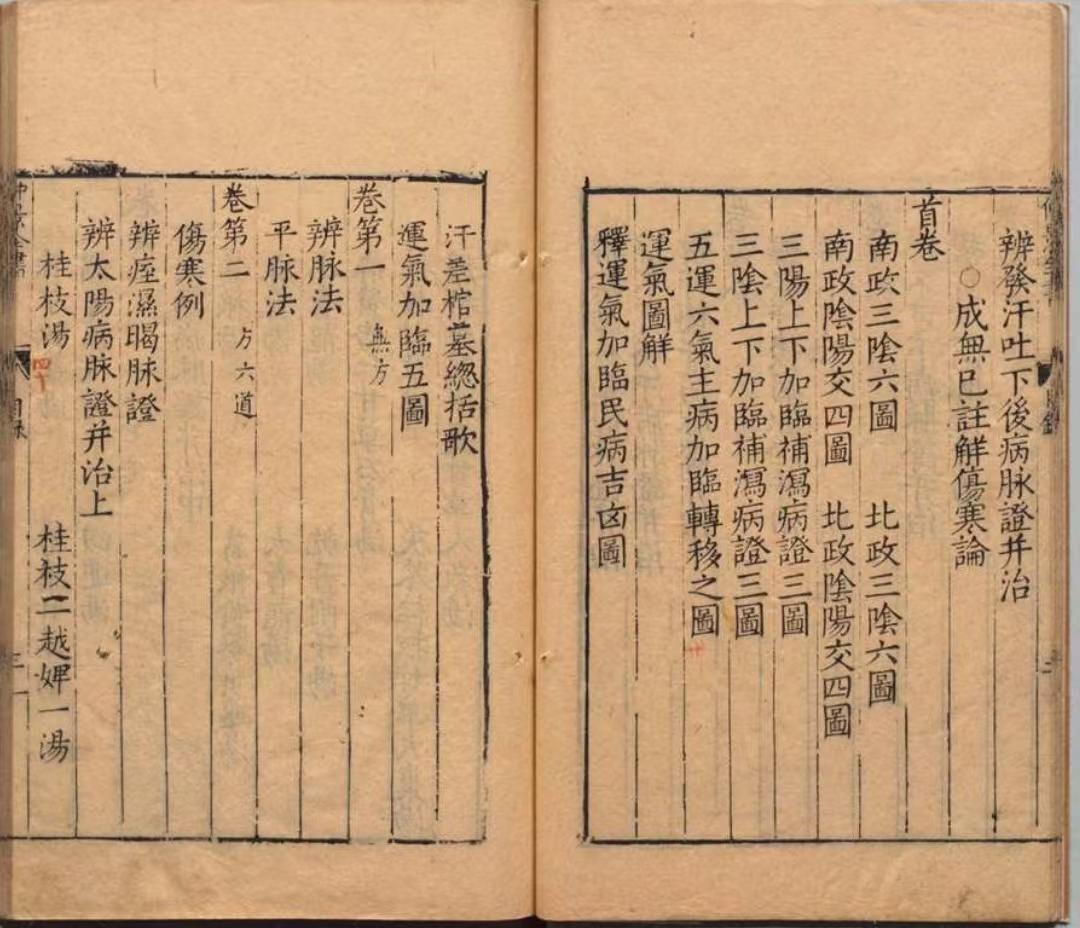 辨發汗吐下後病脉證并治
○成無已註解傷寒論
首卷
南政三陰六圖　北政三陰六圖
南政陰陽交四圖　北政陰陽交四圖
三陽上下加臨補瀉病證三圖
三陰上下加臨補瀉病證三圖
五運六氣主病加臨轉移之圖
運氣圖解
釋運氣加臨民病吉凶圖
汗差棺墓總括歌
運氣加臨五圖
卷第一　無方
辨脉法
平脉法
卷第二　方六道
傷寒例
辨痓濕暍脉證
辨太陽病脉證并治上
桂枝湯　桂枝二越婢一湯